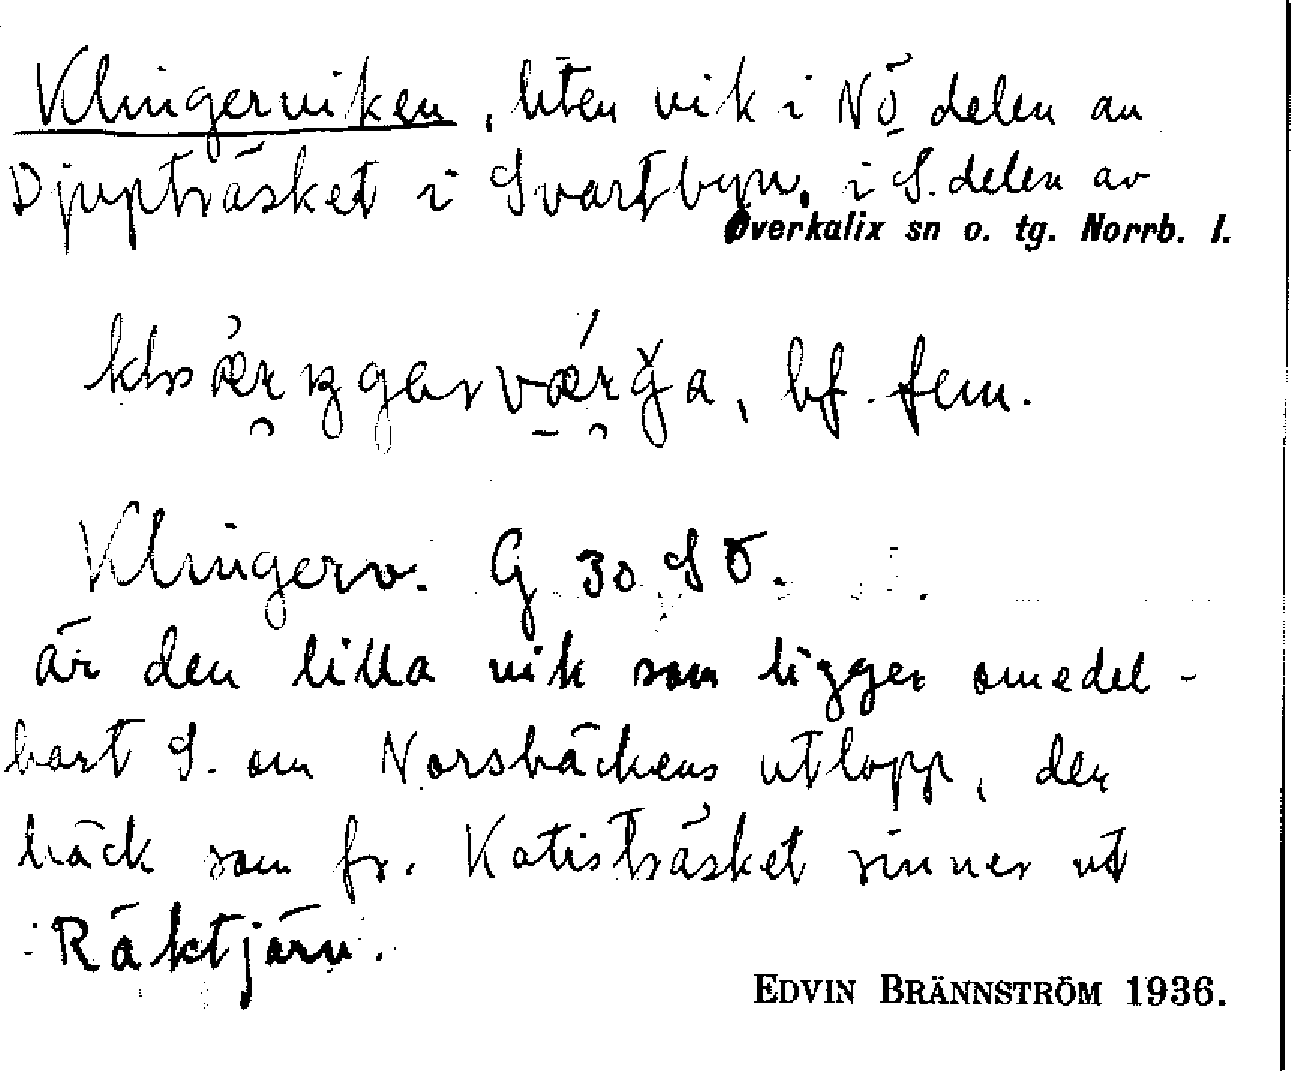 Klingerviken, liten vik i NÖ delen av
Djupträsket i Svartbyn, i S. delen av
Överkalix sn o. tg. Norrb. l.
bf. fem.
Klingerv. G 30 SÖ.
är den lilla vik som ligger omedel-
bart S. om Norsbäckens utlopp, den
bäck som fr. Katisträsket rinner ut
i Räktjärn.
EDVIN BRÄNNSTRÖM 1936.